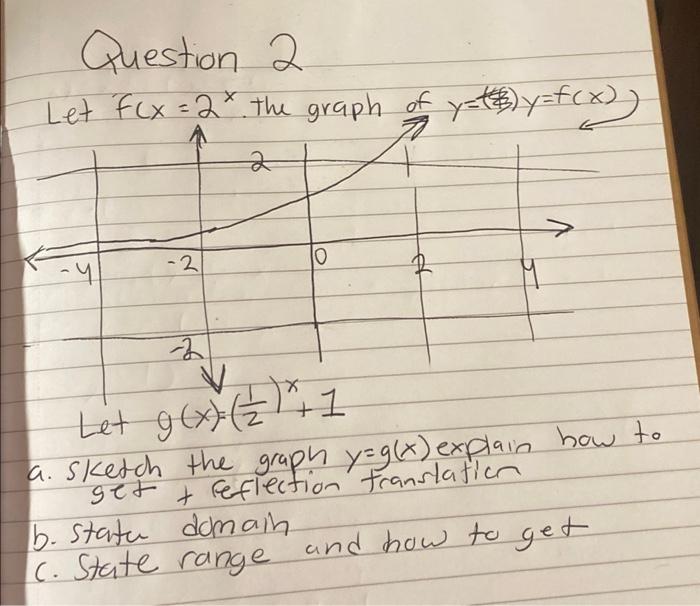 Question 2
Let f(x = 2ˣ. the graph of y= y=f(x))
2
-4 -2 0 2 4
-2
Let g(x)=(1/2)ˣ+1
a. sketch the graph y=g(x) explain how to
get + reflection translation
b. state domain
c. State range and how to get